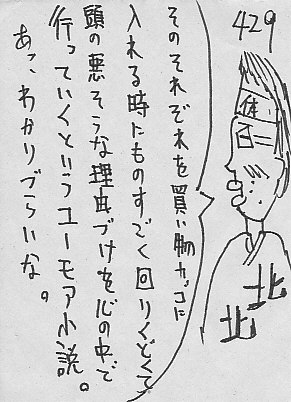 429
そのそれぞれを買い物カゴに
入れる時にものすごく回りくどくて
頭の悪そうな理由づけを心の中で
行っていくというユーモア小説。
あ、わかりづらいな。
北
北